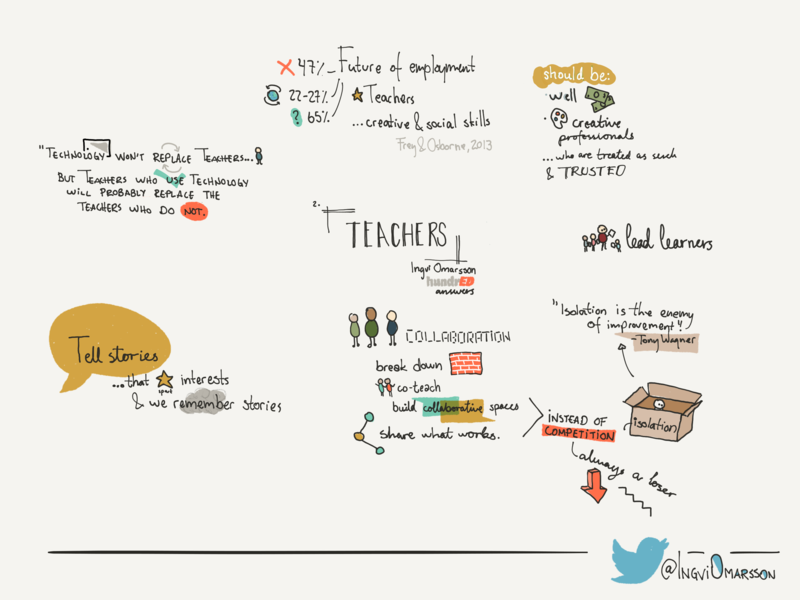 47% Future of employment
22-27% Teachers
? 65% ...creative & social skills
Frey & Osborne, 2013
should be:
· well
· creative
professionals
...who are treated as such
& TRUSTED
"TECHNOLOGY WON'T REPLACE TEACHERS...
BUT TEACHERS WHO USE TECHNOLOGY
WILL PROBABLY REPLACE THE
TEACHERS WHO DO NOT.
2.
TEACHERS
Ingvi Omarsson
hundrED
answers
lead learners
Tell stories
...that spur interests
& we remember stories
COLLABORATION
break down
co-teach
build collaborative spaces
share what works.
INSTEAD OF
COMPETITION
always a loser
"Isolation is the enemy
of improvement"
- Tony Wagner
isolation
@INGVIOMARSSON